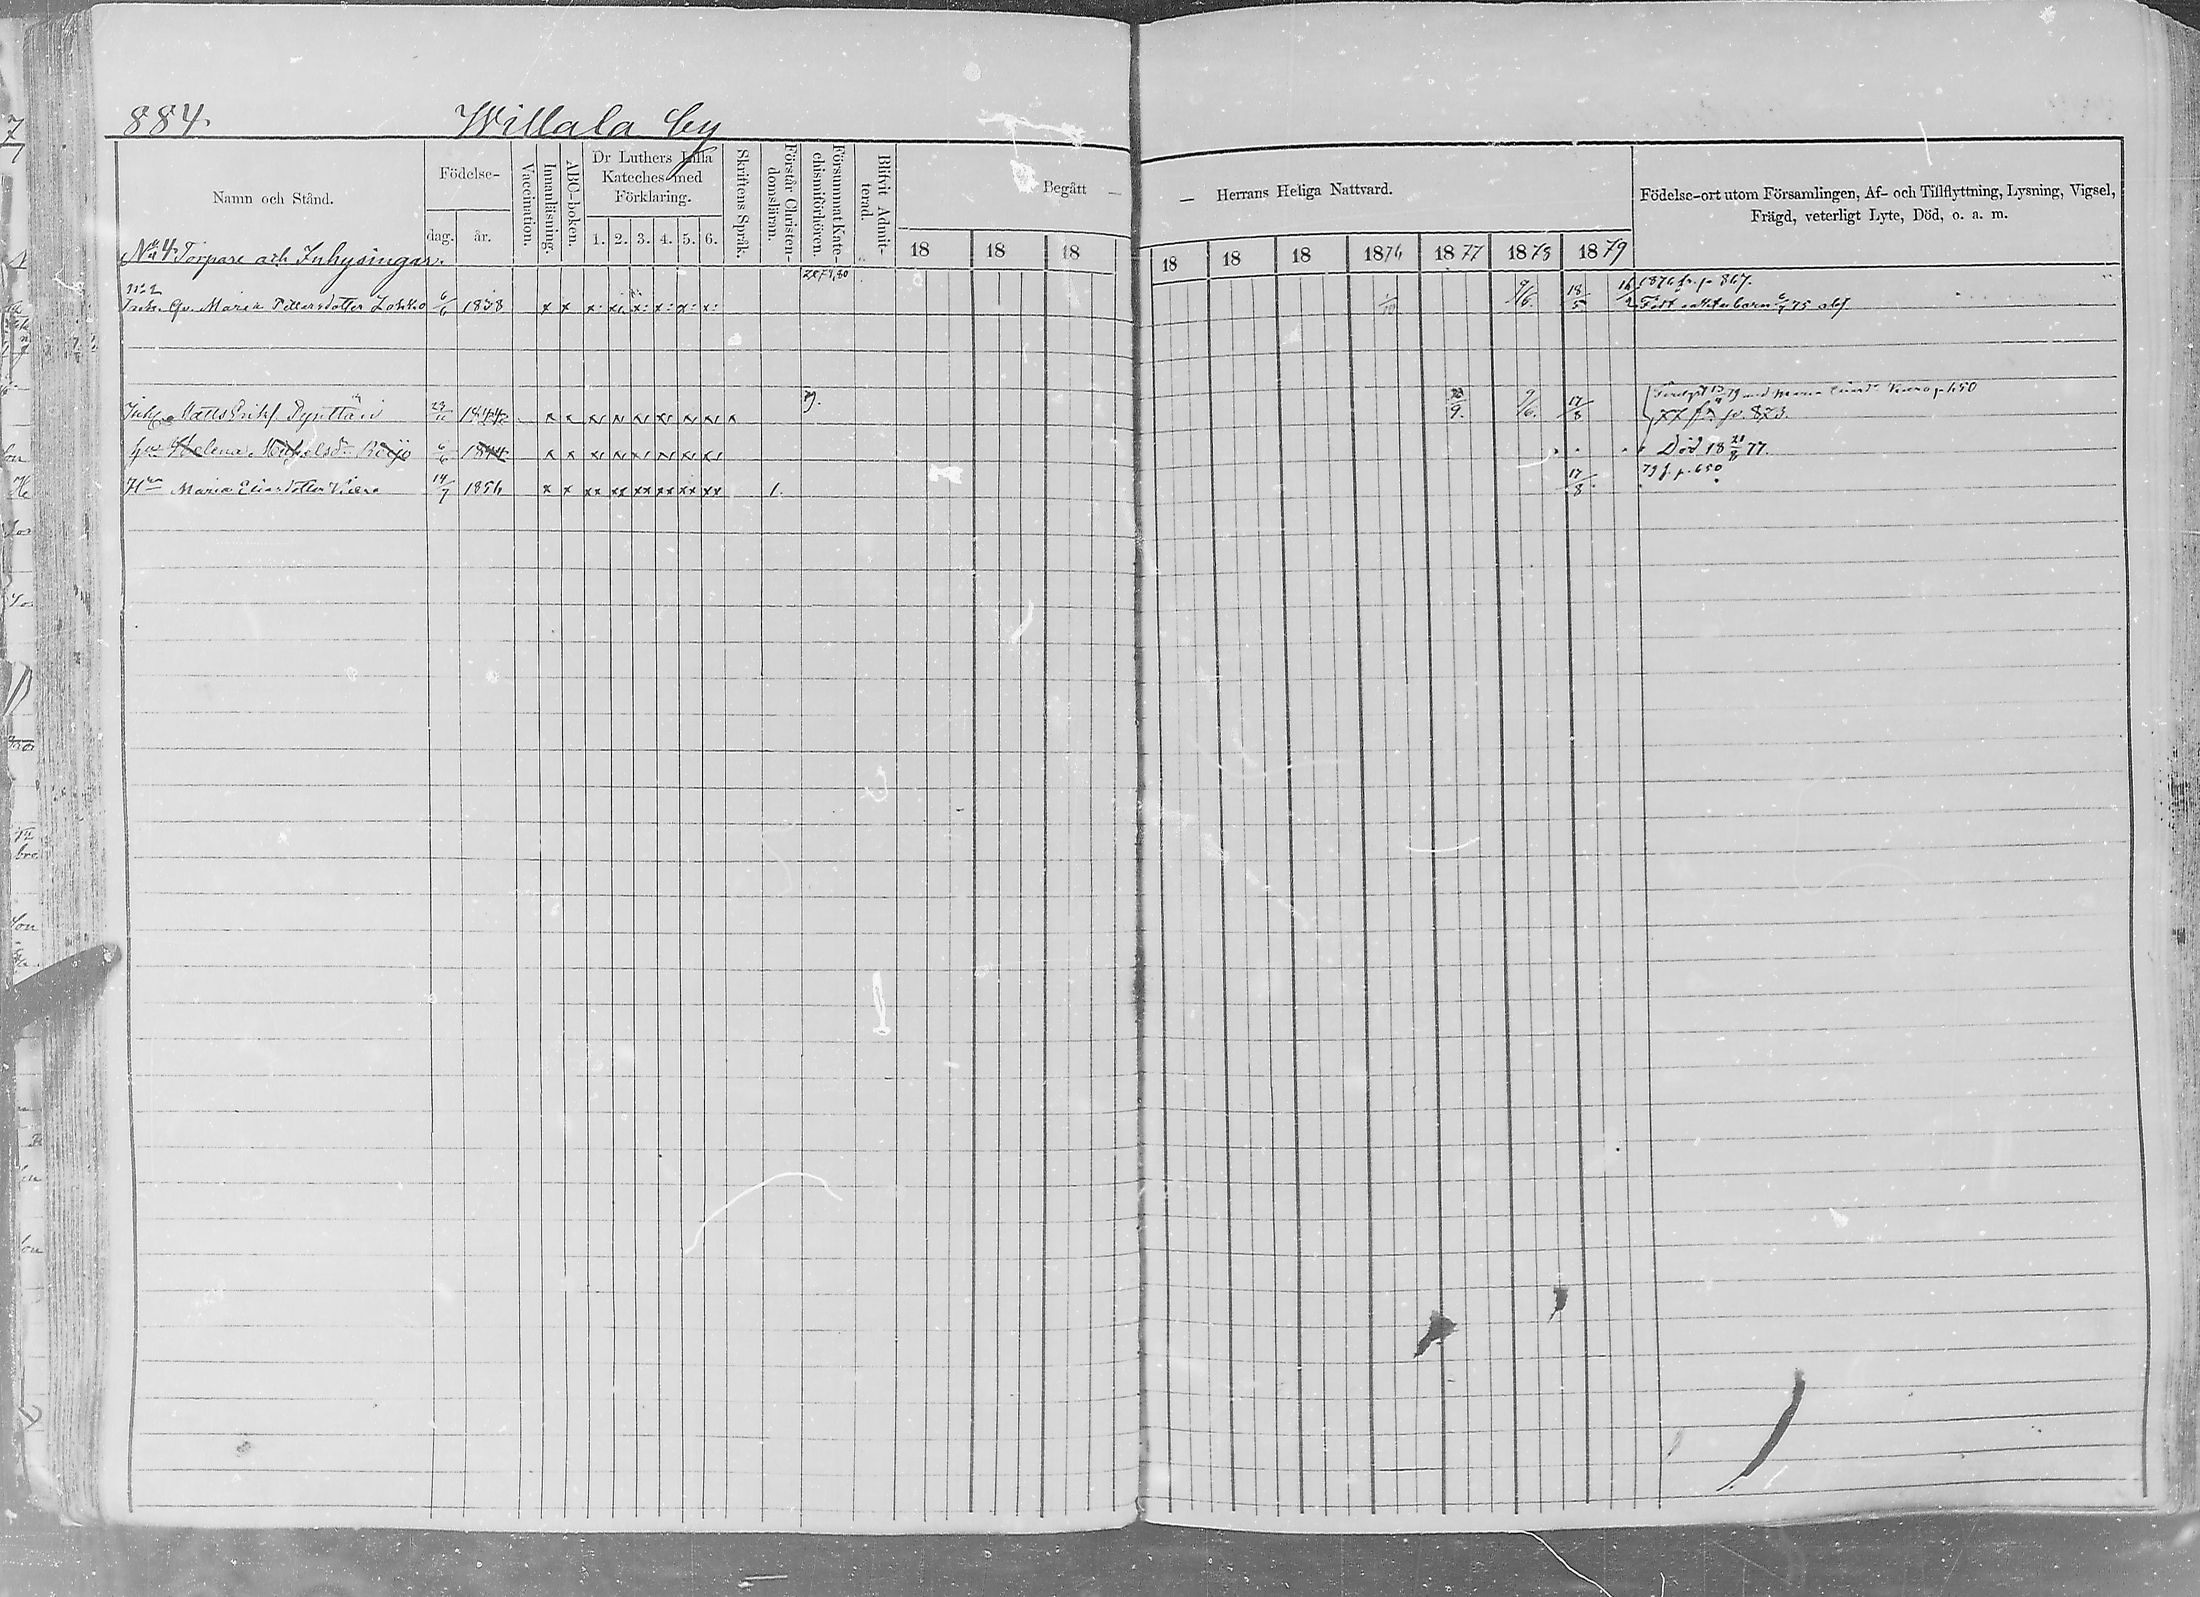 884.
Willala by
Namn och Stånd.
Födelse-
dag. år.
Vaccination.
Innanläsning.
ABC-boken.
Dr Luthers Lilla
Kateches med
Förklaring.
1. 2. 3. 4. 5. 6.
Skriftens Språk.
Förstår Christen-
domsläran.
Försummat Kate-
chismiförhören.
Blifvit Admit-
terad.
Begått —
18 18 18
— Herrans Heliga Nattvard.
18 18 18 1876 1877 1878 1879
Födelse-ort utom Församlingen, Af- och Tillflyttning, Lysning, Vigsel,
Frägd, veterligt Lyte, Död, o. a. m.
No 4. Torpare och Inhysingar.
1876 fr. p. 867.
Inh. Qv. Maria Pettersdotter 6/6 1838 x x x: x: x: x: x: x: 9/6 18/5 Födt oäkta barn 75
Inh. Matts Eriks. Pynttäri 23/11 1844 x x x x x x x x x 9. 9/6. 17/8
77 fr. p. 873.
Helena 6/6 1844 x x x x x x x x Död 18 77.
79 f. p. 650
Hu Maria Eliasdotter 14/7 1856 x x xx xx xx xx xx xx 1. 17/8